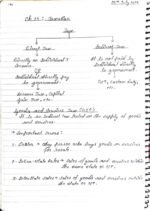 25th July 2024
Ch 12 : Taxation
Tax
Direct Tax
Indirect Tax
Directly on Individual's
It is not paid by
Income
Individual directly
OR
to government
Individual directly pay
to government
GST, Custom duty,
etc.
Income Tax, Capital
gain Tax, etc.
Goods and Services Tax (GST)
It is an indirect tax levied on the supply of goods
and services.
Important terms:
1. Dealer → Any person who buys goods or services
for resale.
2. Intra-state Sales → Sales of goods and services within
the same state or UT.
3. Inter-state Sales → Sales of goods and services outside
the state or UT.